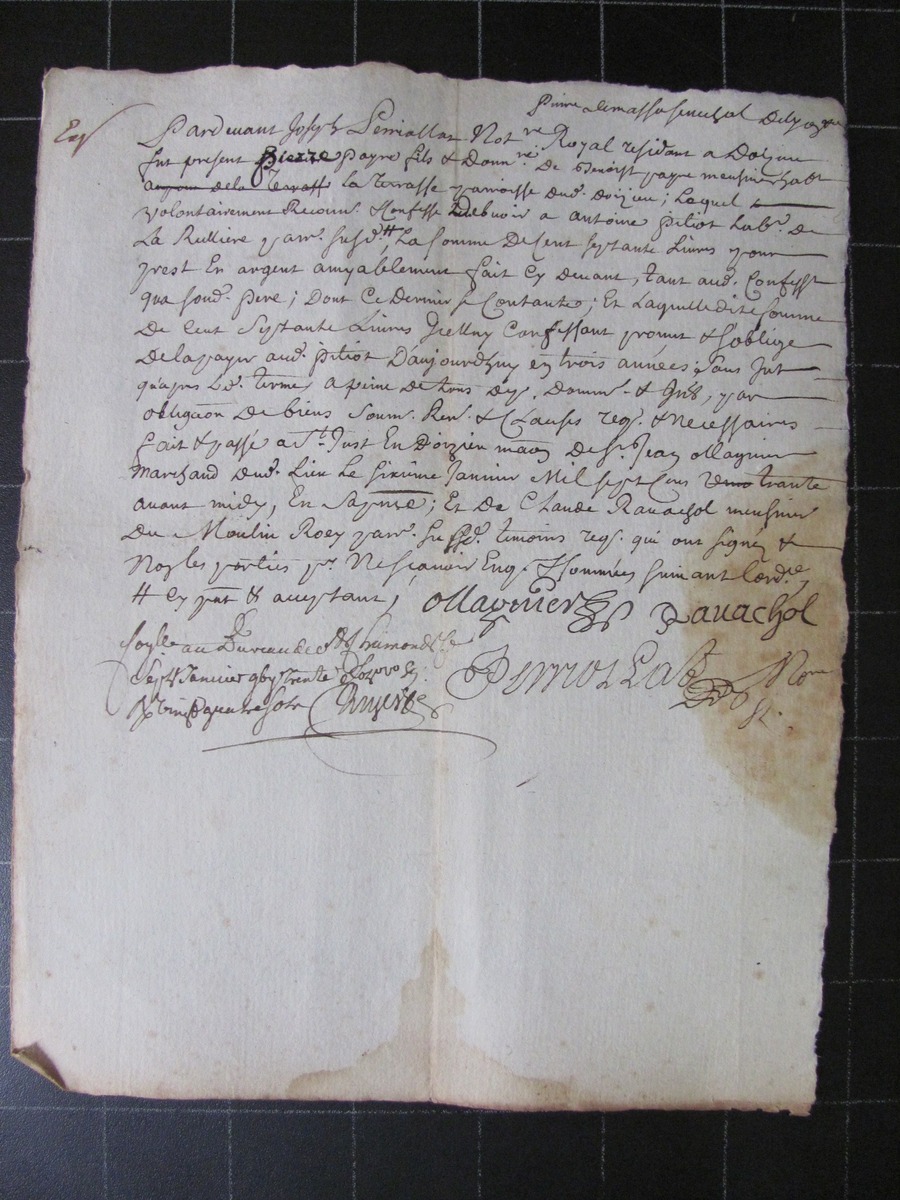 Exp
Pardevant Joseph Perriollat Not.re Royal residant a Doizieu
fut present pierre payre fils & Donn.re De Benoist payre meusnier habt
de la Terrasse la terrasse parroisse dud. doizieu, Lequel
volontairement Reconn. & confesse debvoir a antoine piliot Lab.r de
La Rulliere parr. susd. # La somme De Cent septante Livres pour
prest En argent amyablement fait cy devant, tant aud. Confesst
qua sond. pere; Dont Ce Dernier se Contante; Et Laquelle dite somme
De Cent Septante Livres Icelluy Confessant promet & s'oblige
De la payer aud. piliot D'aujourdhuy en trois années; sans Int
qu'apres Led. terme, a peine de tous dep. Domm. & Ints, par
obligaon De biens soum. Ren. & Clauses req. & Necessaires
fait & passé a St. Just En Doizieu maon De Sr. Jean ollagnier
Marchand dud. Lieu Le sixième Janvier Mil sept Cens trante
avant midy, En sa pnce; Et De Claude Ravachol meusnier
Du Moulin parr. susd. temoins req. qui ont signé &
Non les parties pr. Ne scavoir Enq. & sommées suivant L'ord.ce,
# Cy pnt & acceptant,
ollagnier Ravachol
au Bureau de St Chaumond Le
Sept Janvier trente
Perriollat No.re